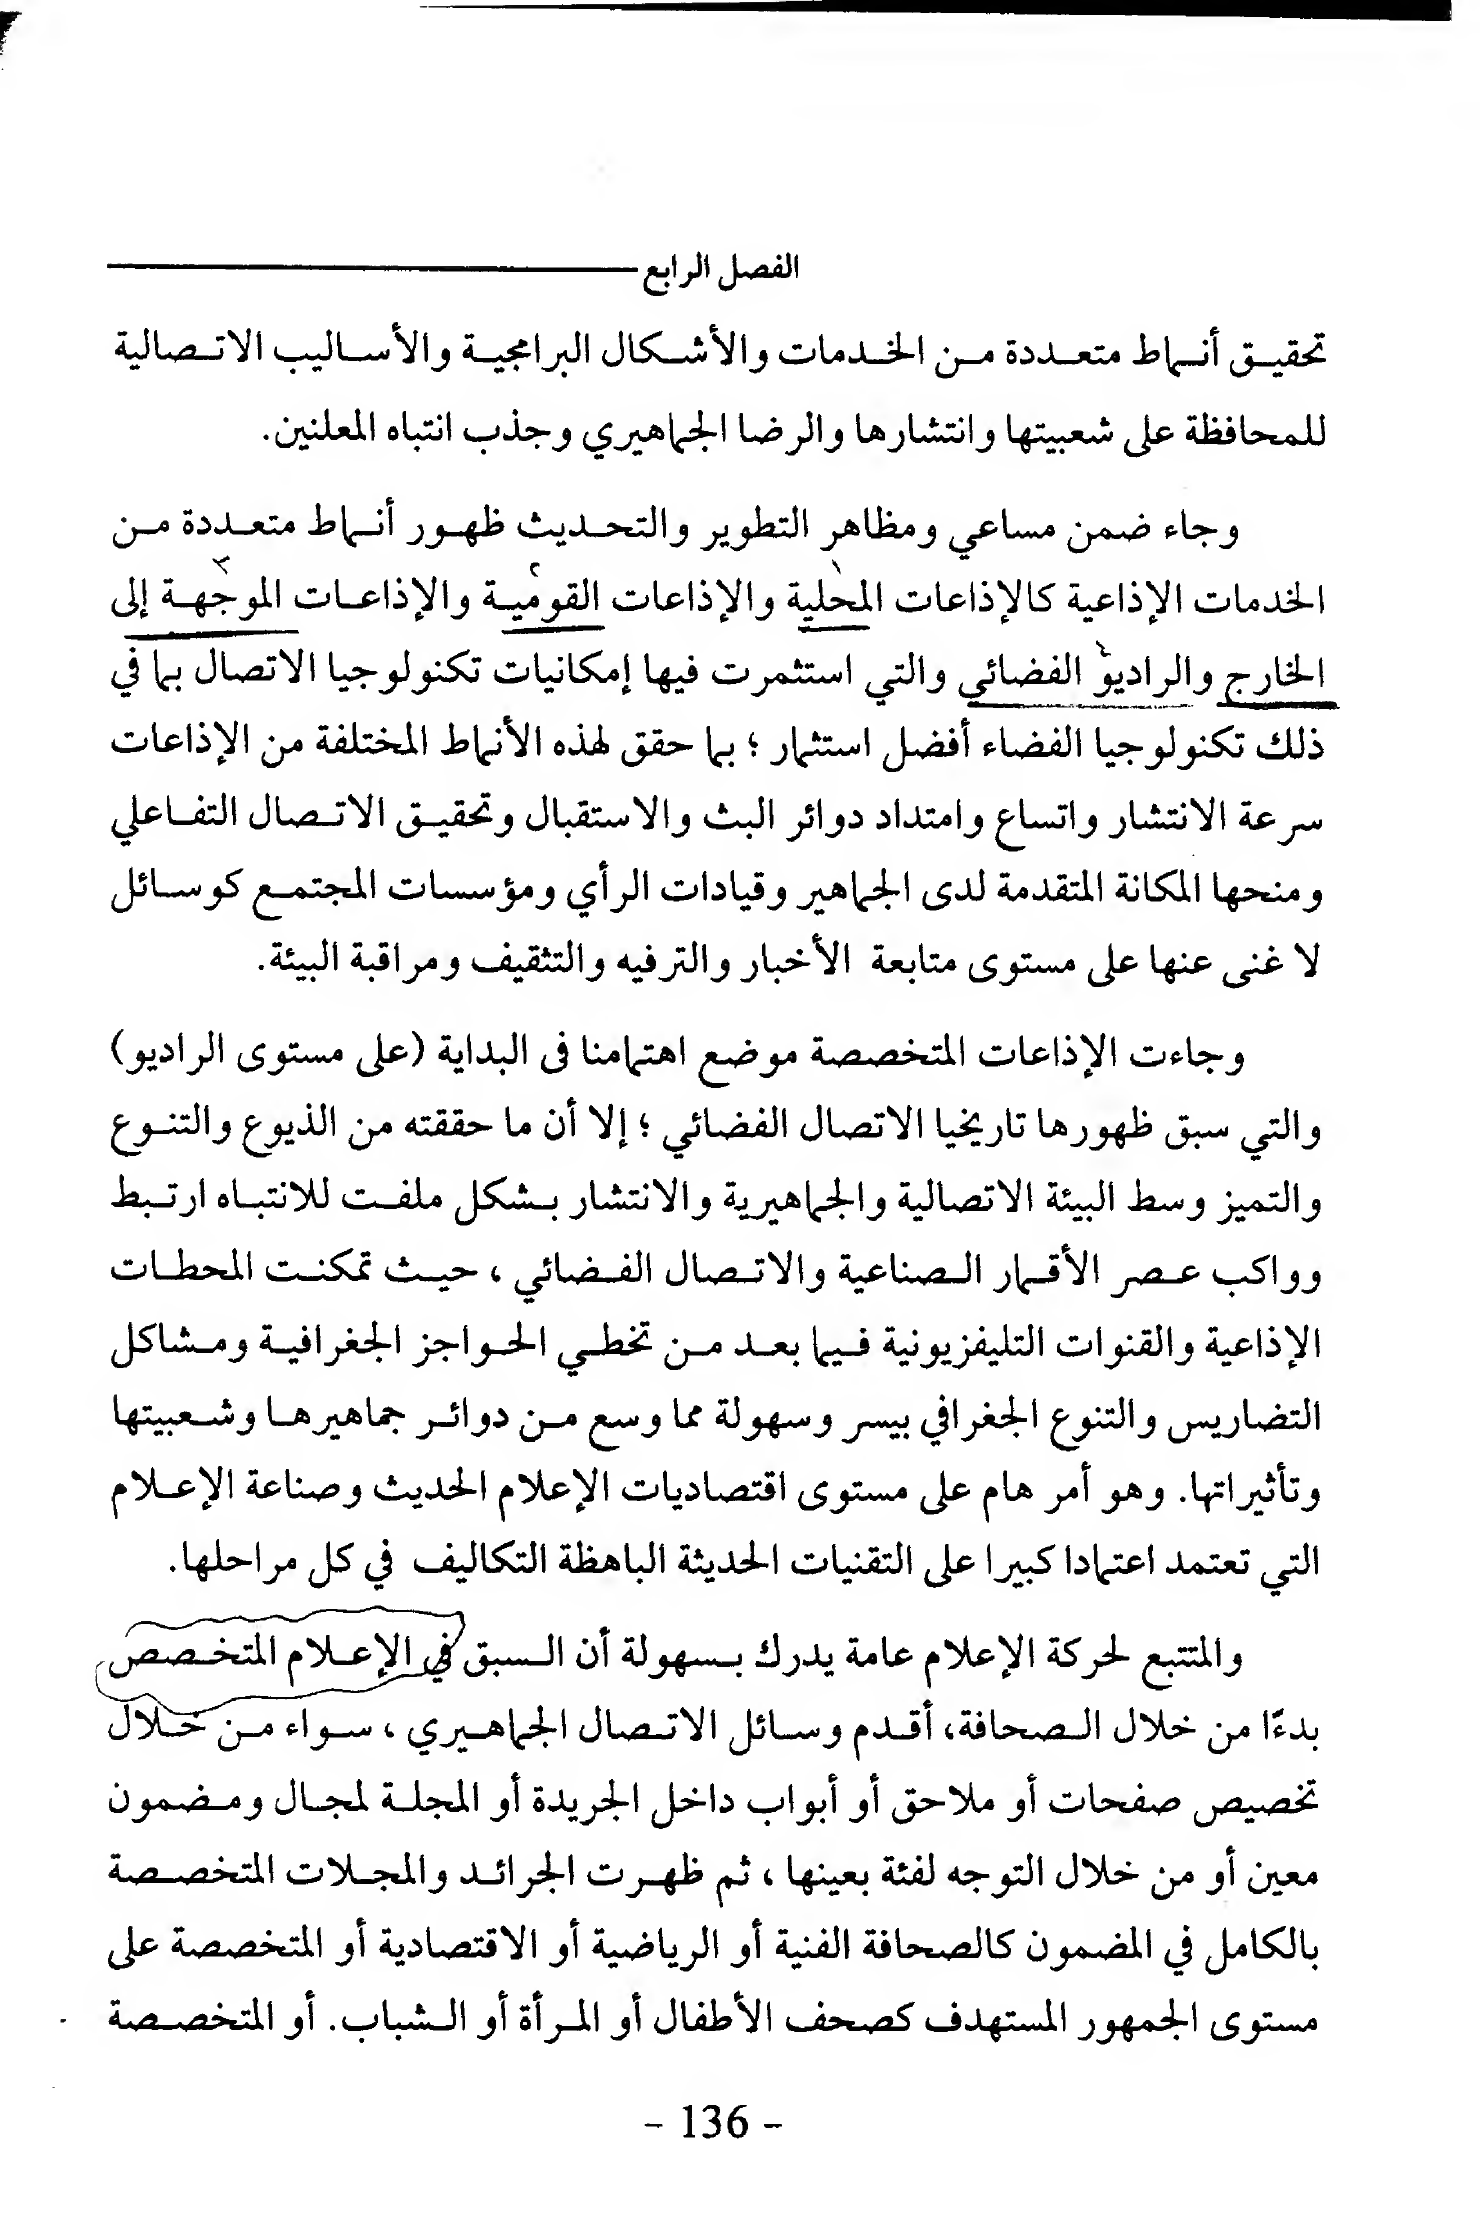 الفصل الرابع
تحقيق أنماط متعددة من الخدمات والأشكال البرامجية والأساليب الاتصالية
للمحافظة على شعبيتها وانتشارها والرضا الجماهيري وجذب انتباه المعلنين.
وجاء ضمن مساعي ومظاهر التطوير والتحديث ظهور أنماط متعددة من
الخدمات الإذاعية كالإذاعات المحلية والإذاعات القومية والإذاعات الموجهة إلى
الخارج والراديو الفضائي والتي استثمرت فيها إمكانيات تكنولوجيا الاتصال بما في
ذلك تكنولوجيا الفضاء أفضل استثمار ؛ بما حقق لهذه الأنماط المختلفة من الإذاعات
سرعة الانتشار واتساع وامتداد دوائر البث والاستقبال وتحقيق الاتصال التفاعلي
ومنحها المكانة المتقدمة لدى الجماهير وقيادات الرأي ومؤسسات المجتمع كوسائل
لا غنى عنها على مستوى متابعة الأخبار والترفيه والتثقيف ومراقبة البيئة.
وجاءت الإذاعات المتخصصة موضع اهتمامنا فى البداية (على مستوى الراديو)
والتي سبق ظهورها تاريخيا الاتصال الفضائي ؛ إلا أن ما حققته من الذيوع والتنوع
والتميز وسط البيئة الاتصالية والجماهيرية والانتشار بشكل ملفت للانتباه ارتبط
وواكب عصر الأقمار الصناعية والاتصال الفضائي ، حيث تمكنت المحطات
الإذاعية والقنوات التليفزيونية فيما بعد من تخطي الحواجز الجغرافية ومشاكل
التضاريس والتنوع الجغرافي بيسر وسهولة مما وسع من دوائر جماهيرها وشعبيتها
وتأثيراتها. وهو أمر هام على مستوى اقتصاديات الإعلام الحديث وصناعة الإعلام
التي تعتمد اعتمادا كبيرا على التقنيات الحديثة الباهظة التكاليف في كل مراحلها.
والمتتبع لحركة الإعلام عامة يدرك بسهولة أن السبق في الإعلام المتخصص
بدءًا من خلال الصحافة، أقدم وسائل الاتصال الجماهيري ، سواء من خلال
تخصيص صفحات أو ملاحق أو أبواب داخل الجريدة أو المجلة لمجال ومضمون
معين أو من خلال التوجه لفئة بعينها ، ثم ظهرت الجرائد والمجلات المتخصصة
بالكامل في المضمون كالصحافة الفنية أو الرياضية أو الاقتصادية أو المتخصصة على
مستوى الجمهور المستهدف كصحف الأطفال أو المرأة أو الشباب. أو المتخصصة
- 136 -